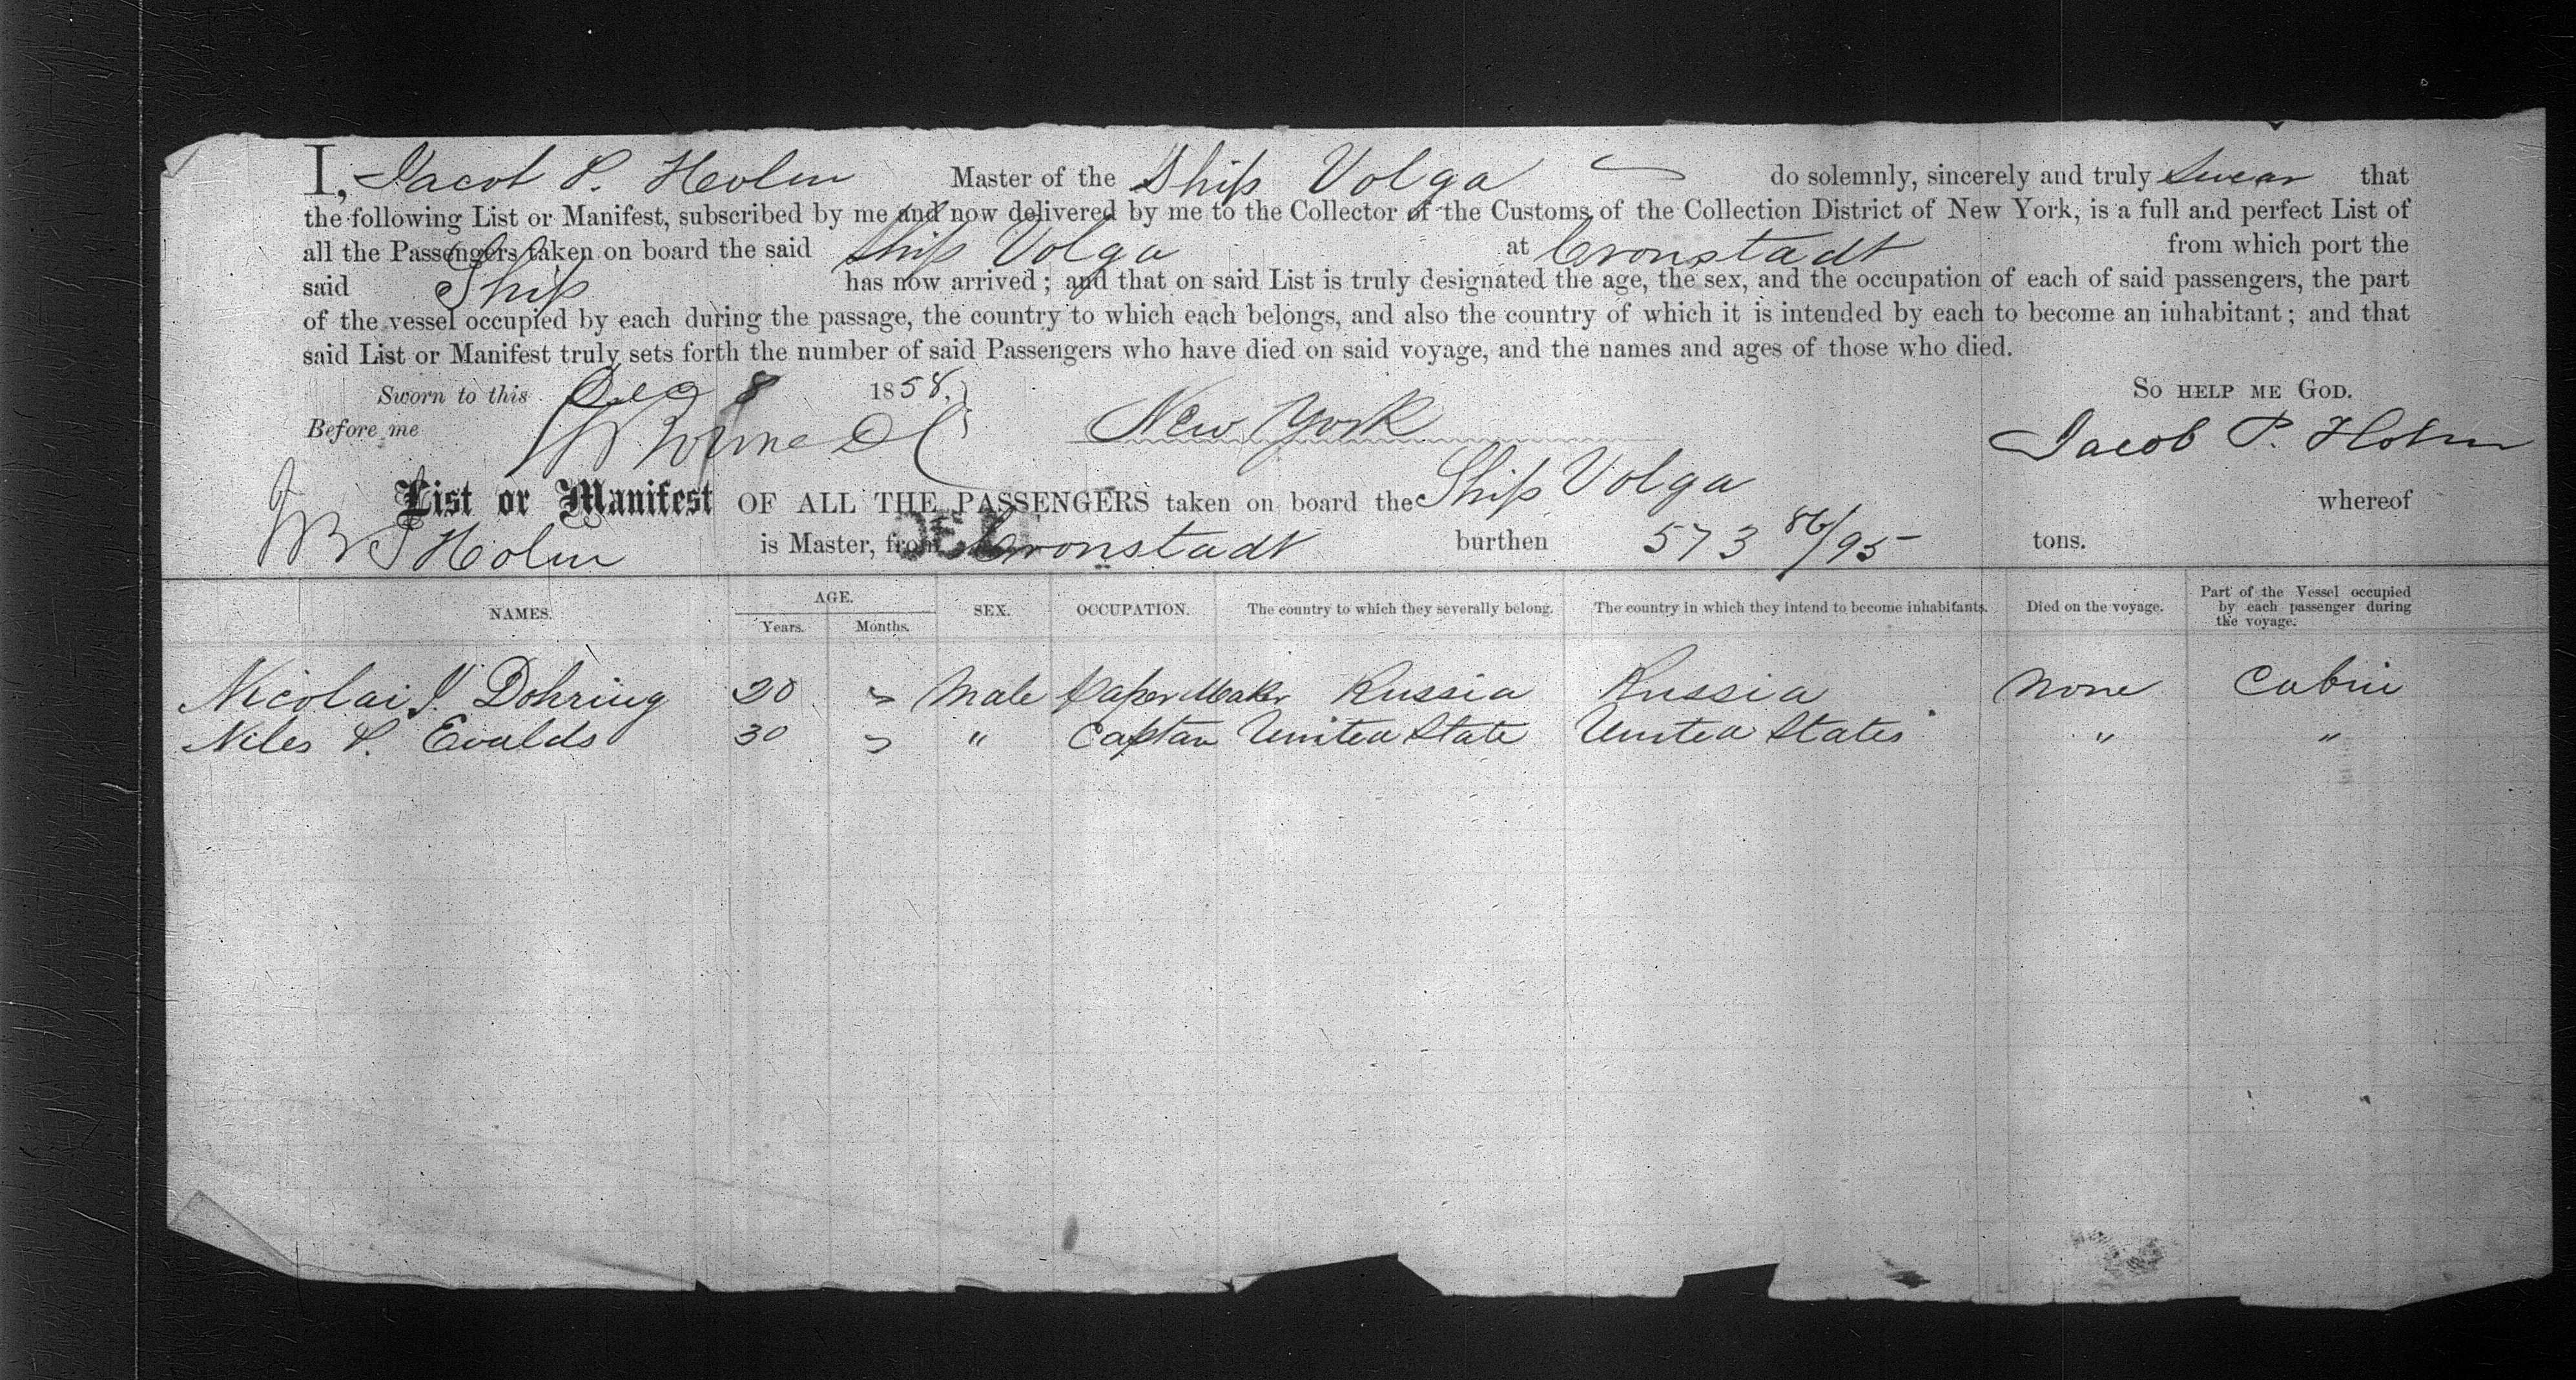 I, Jacob P. Holm Master of the Ship Volga do solemnly, sincerely and truly swear that
the following List or Manifest, subscribed by me and now delivered by me to the Collector of the Customs, of the Collection District of New York, is a full and perfect List of
all the Passengers taken on board the said Ship Volga at Cronstadt from which port the
said Ship has now arrived; and that on said List is truly designated the age, the sex, and the occupation of each of said passengers, the part
of the vessel occupied by each during the passage, the country to which each belongs, and also the country of which it is intended by each to become an inhabitant; and that
said List or Manifest truly sets forth the number of said Passengers who have died on said voyage, and the names and ages of those who died.
Sworn to this Dec 8 1858, So help me God.
Before me New York Jacob P. Holm
List or Manifest OF ALL THE PASSENGERS taken on board the Ship Volga whereof
Holm is Master, from Cronstadt burthen 573 86/95 tons.
NAMES. AGE. Years. Months. SEX. OCCUPATION. The country to which they severally belong. The country in which they intend to become inhabitants. Died on the voyage. Part of the Vessel occupied by each passenger during the voyage.
Nicolai J. Dohring 20 " Male Paper Maker Russia Russia None Cabin
Niles P. Evalds 30 " " Captan United State United States " "